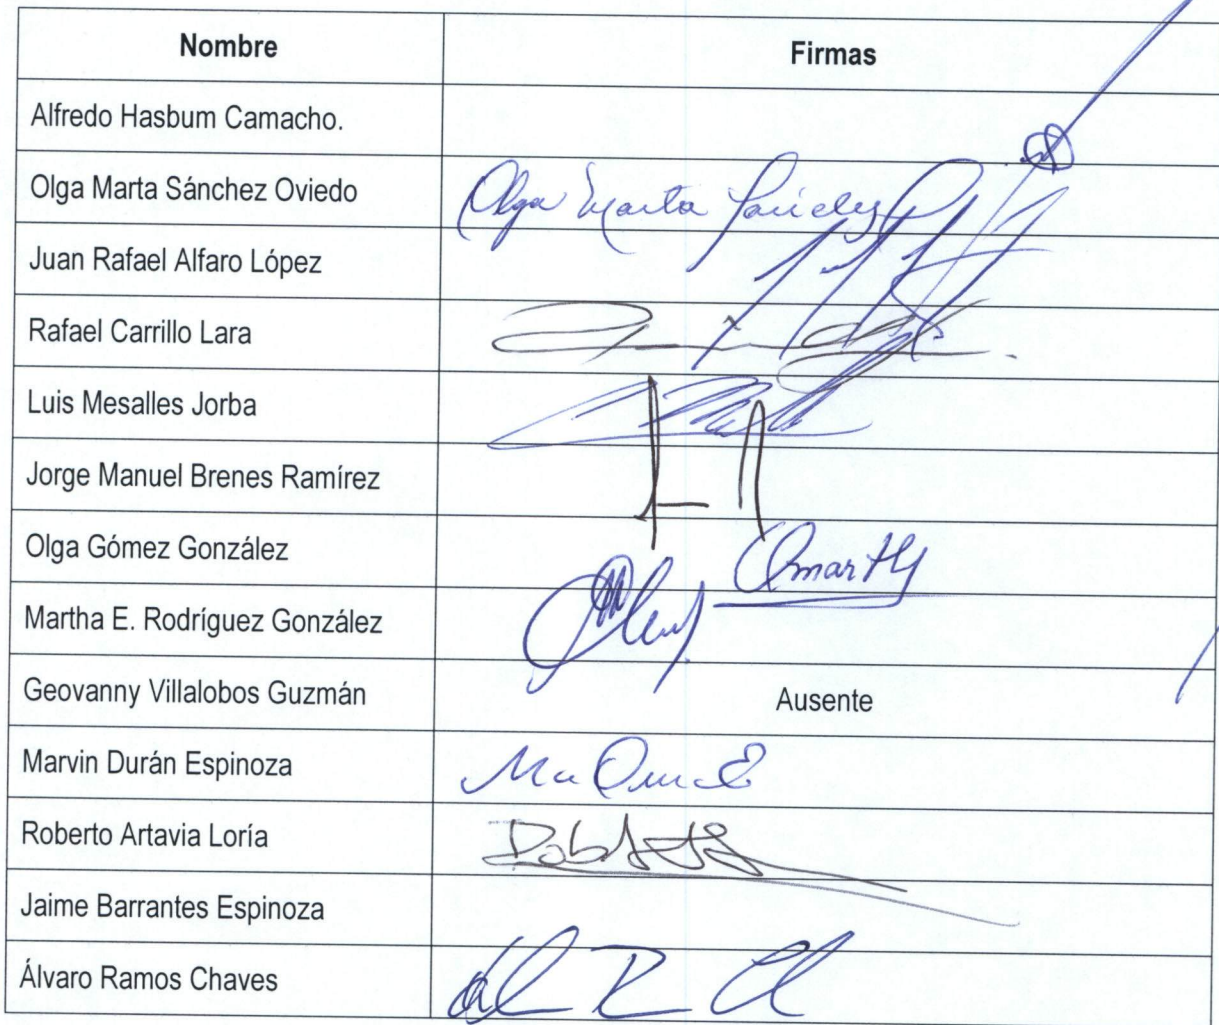 Nombre Firmas
Alfredo Hasbum Camacho.
Olga Marta Sánchez Oviedo Olga Marta Sánchez
Juan Rafael Alfaro López
Rafael Carrillo Lara
Luis Mesalles Jorba
Jorge Manuel Brenes Ramírez
Olga Gómez González
Martha E. Rodríguez González
Geovanny Villalobos Guzmán Ausente
Marvin Durán Espinoza
Roberto Artavia Loría
Jaime Barrantes Espinoza
Álvaro Ramos Chaves